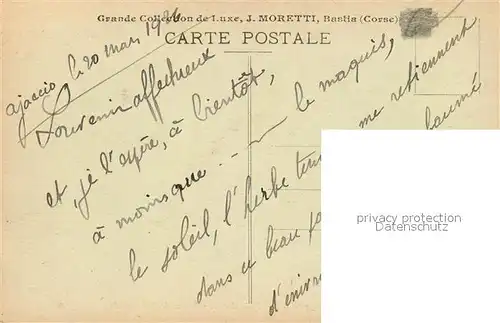 Grande Collection de Luxe, J. MORETTI, Bastia (Corse)
CARTE POSTALE
ajaccio le 20 mars 1926
Souvenir affectueux
et j'espère, à bientôt,
à moins que -- le maquis,
le soleil, l'herbe me retiennent
dans ce beau baumé
privacy protection
Datenschutz